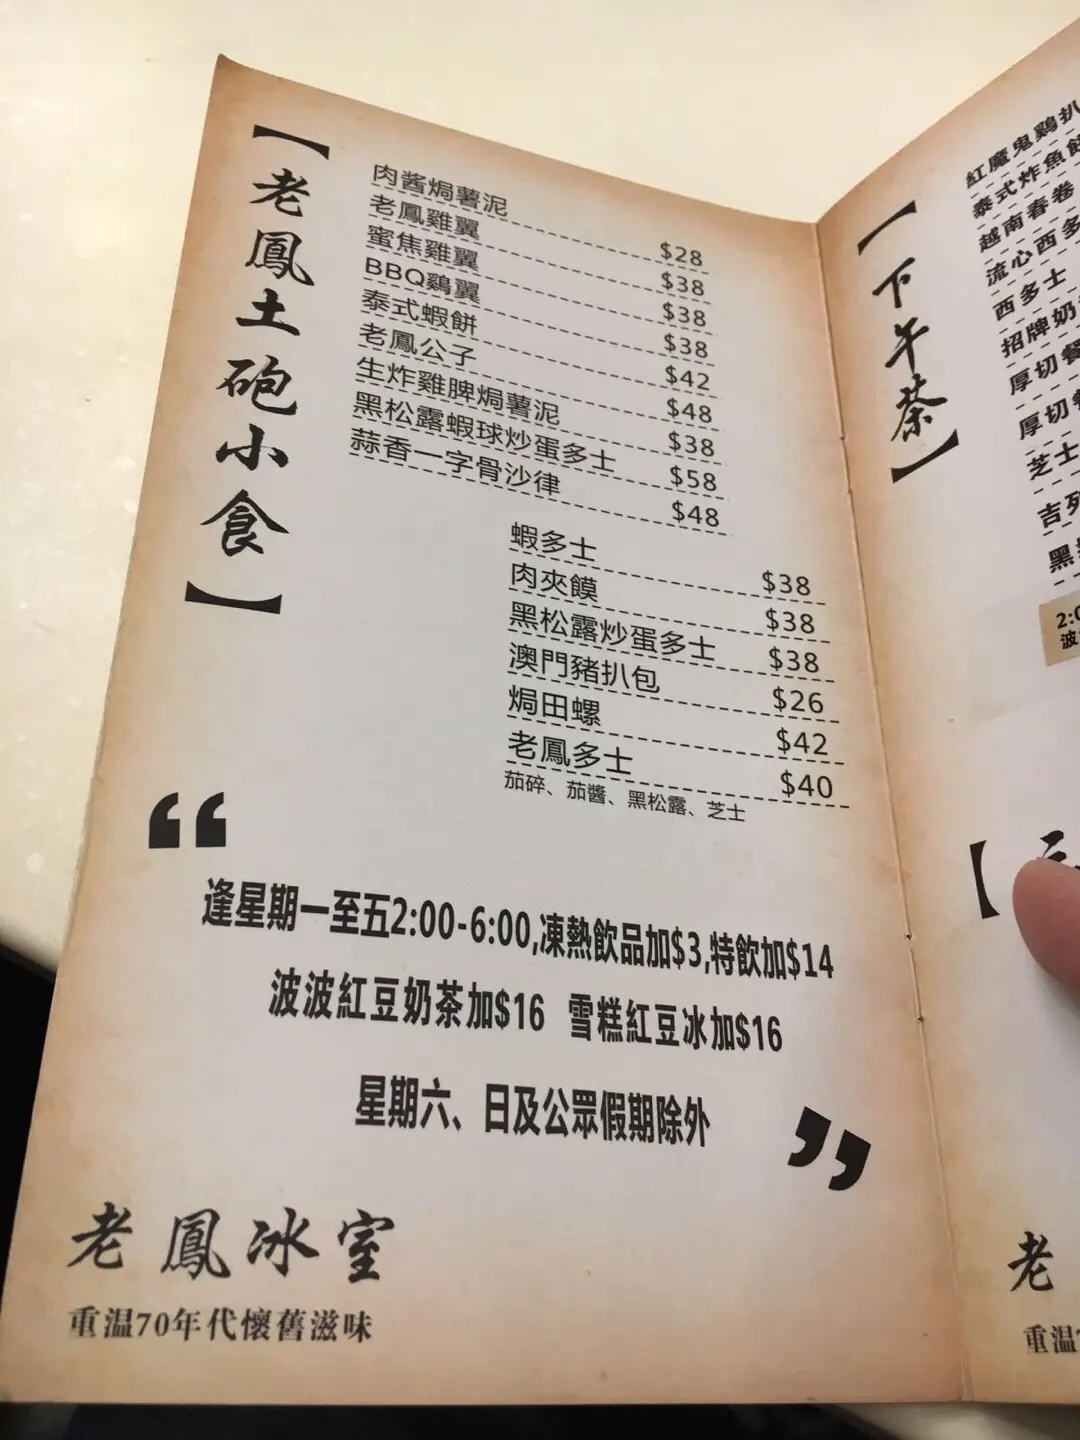 【老鳳土砲小食】
肉酱焗薯泥 $28
老鳳雞翼 $38
蜜焦雞翼 $38
BBQ鷄翼 $38
泰式蝦餅 $42
老鳳公子 $48
生炸雞脾焗薯泥 $38
黑松露蝦球炒蛋多士 $58
蒜香一字骨沙律 $48
蝦多士 $38
肉夾饃 $38
黑松露炒蛋多士 $38
澳門豬扒包 $26
焗田螺 $42
老鳳多士 $40
茄碎、茄醬、黑松露、芝士
“
逢星期一至五2:00-6:00,凍熱飲品加$3,特飲加$14
波波紅豆奶茶加$16 雪糕紅豆冰加$16
星期六、日及公眾假期除外
”
老鳳冰室
重温70年代懷舊滋味
【下午茶】
紅魔鬼鷄扒
泰式炸魚餅
越南春卷
流心西多
西多士
招牌奶
厚切
厚切
芝士
吉列
黑
2:0
波
【
老
重温